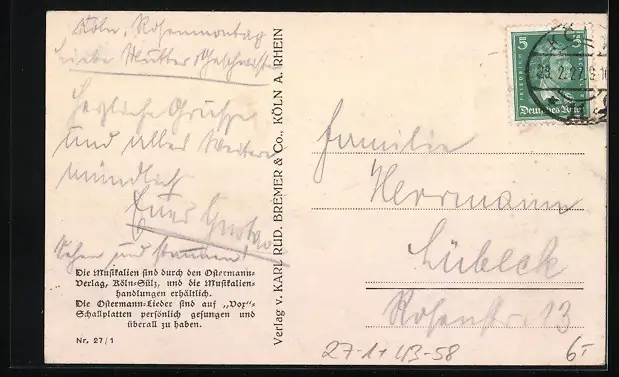 Köln, Rosenmontag
Liebe Mutter u Geschwister
Herzliche Grüße
und alles Weitere
mündlich
Euer Gustav
Sehen und staunen!
Die Musikalien sind durch den Ostermann-
Verlag, Köln-Sülz, und die Musikalien-
handlungen erhältlich.
Die Ostermann-Lieder sind auf „Vox"-
Schallplatten persönlich gesungen und
überall zu haben.
Nr. 27/1
Verlag v. KARL RUD. BREMER & Co., KÖLN A. RHEIN
5 5
FRIEDRICH
Deutsches Reich
2.27.9-10
Familie
Herrmann
Lübeck
Rosenstr. 13
27-11 43-58
6,-